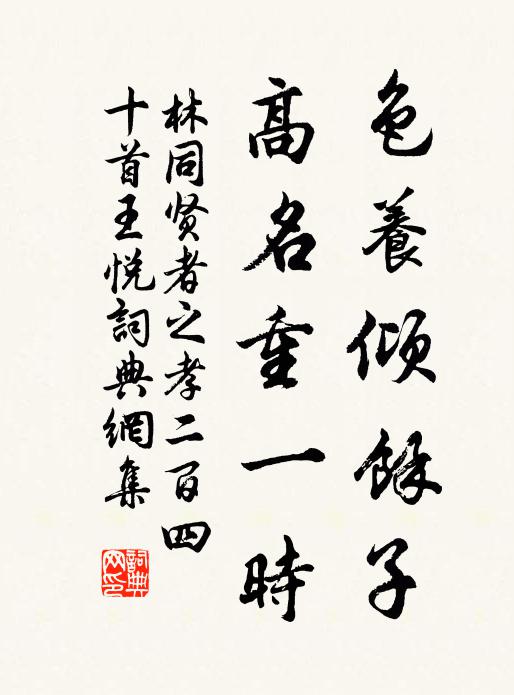 色養傾餘子
高名重一時
林同贤者之孝二百四
十首王悦詞典網集
詞典
网印